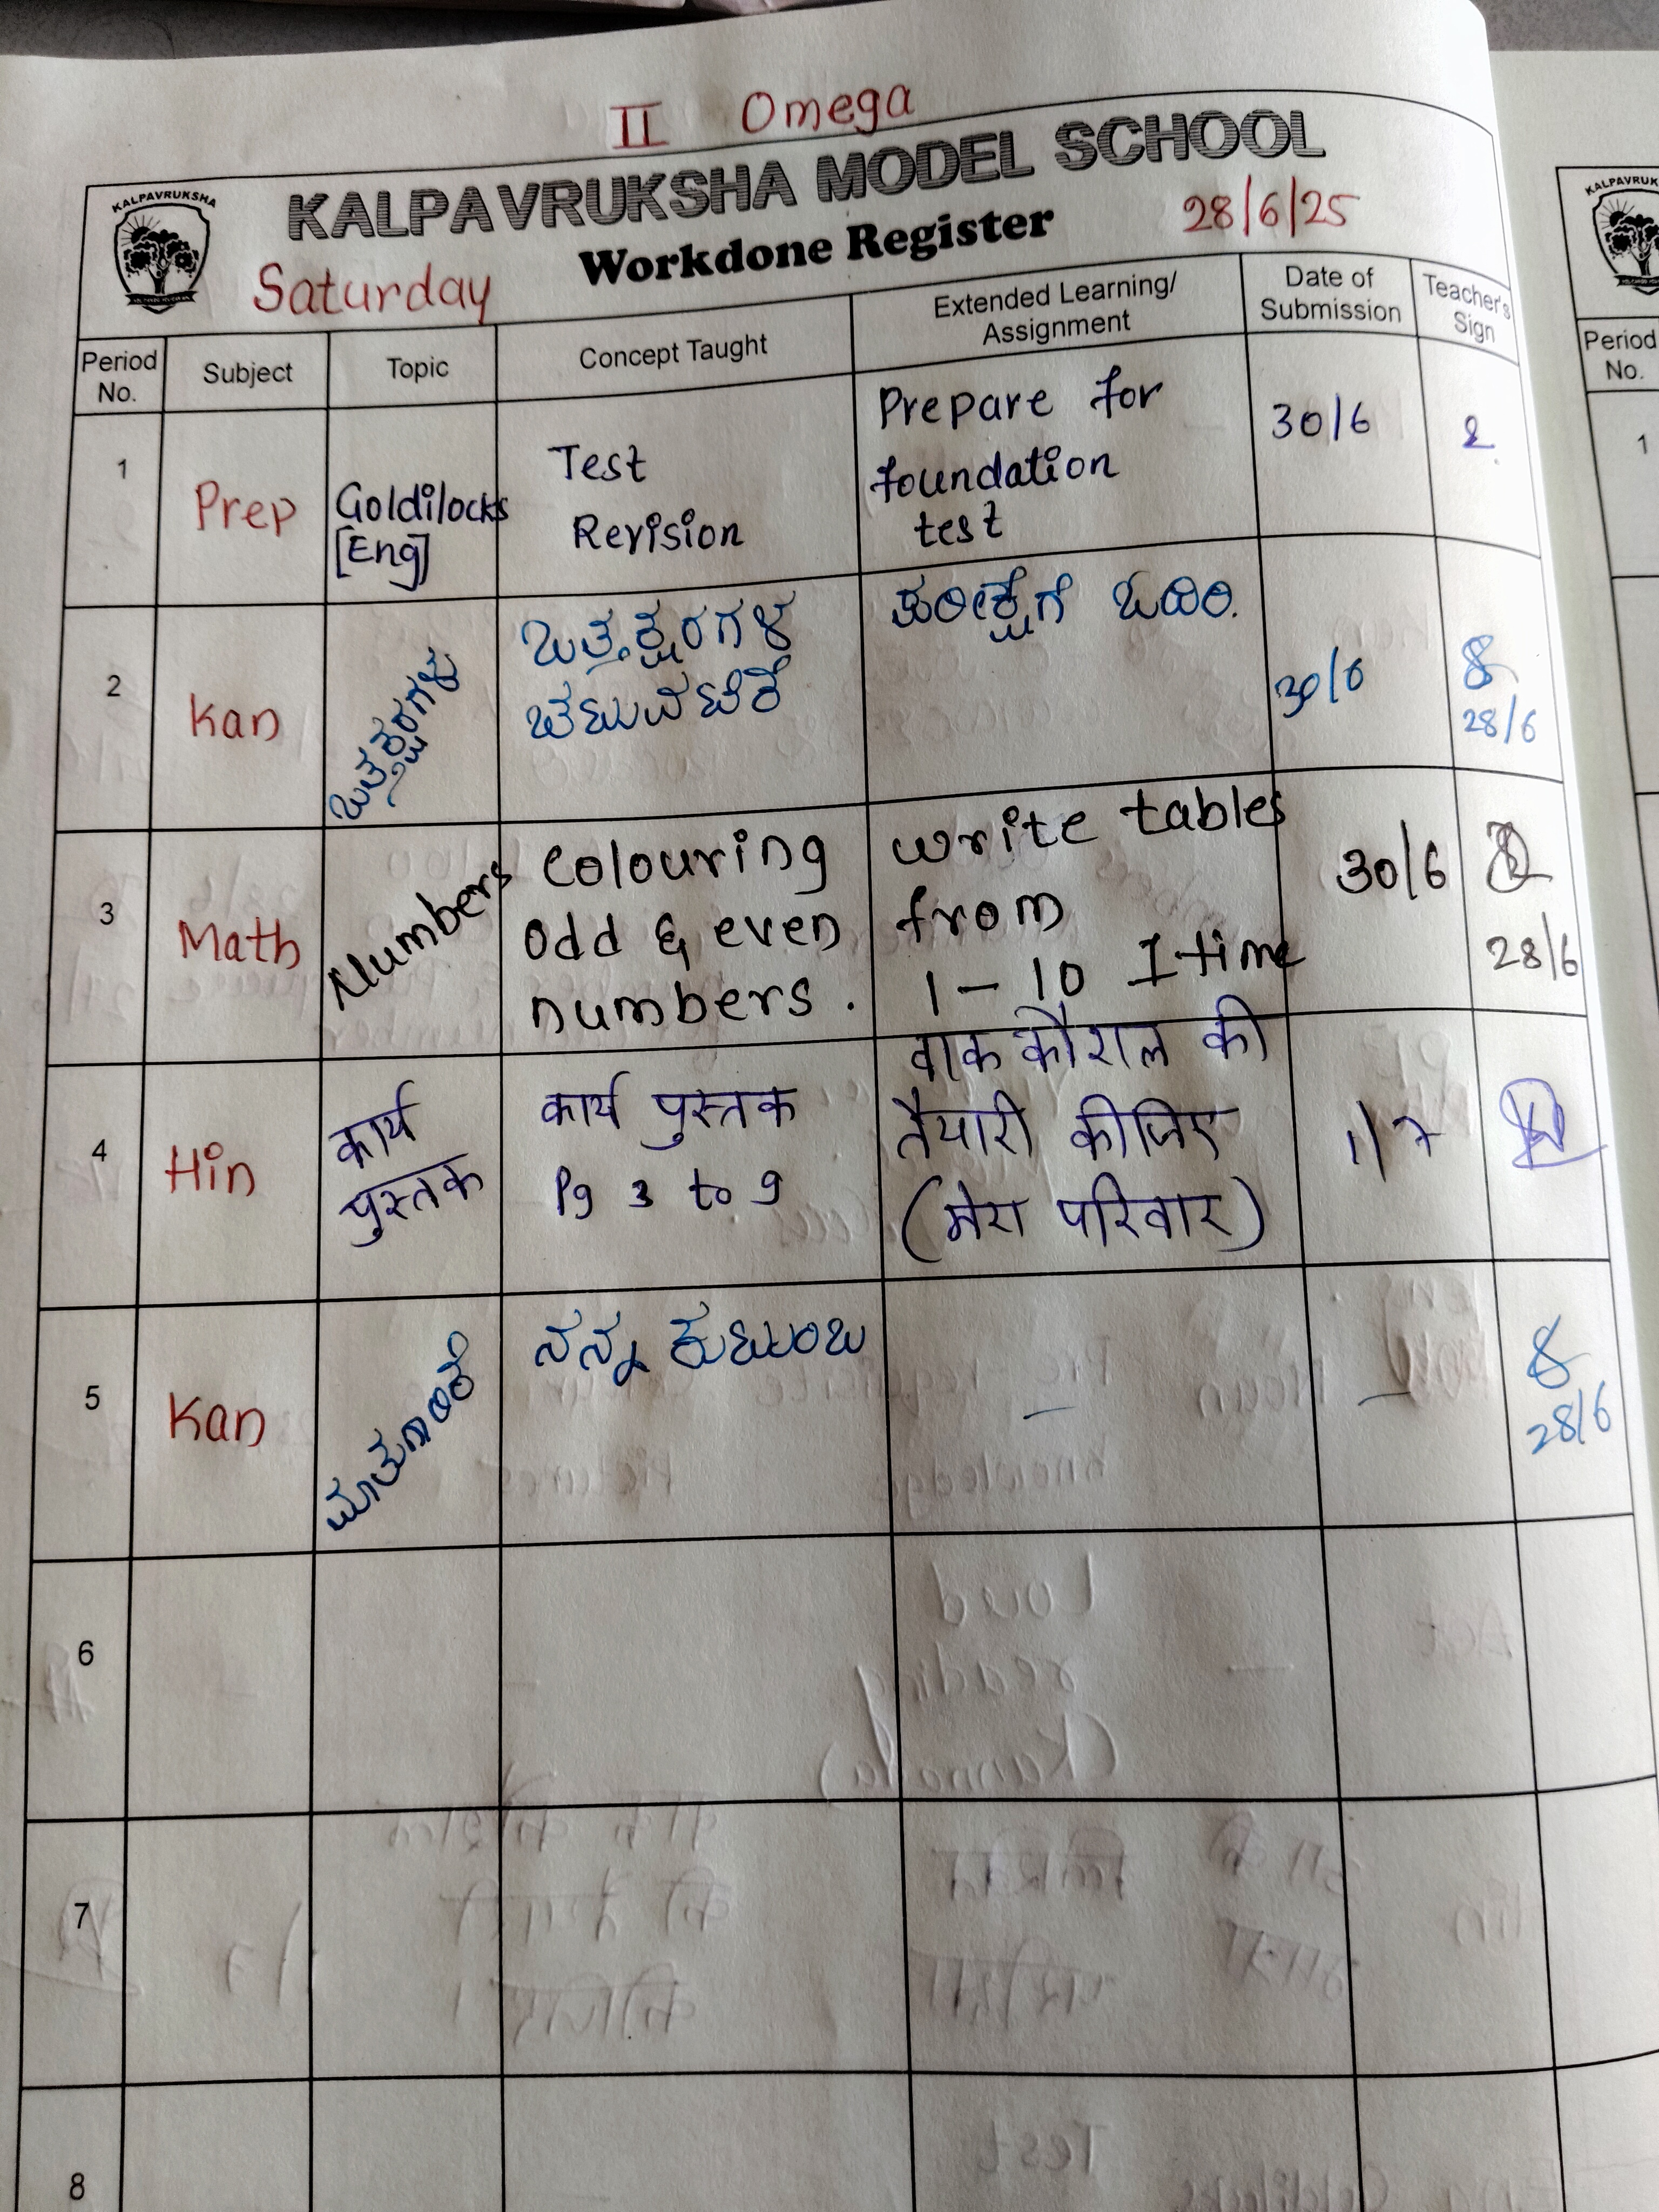 II Omega
KALPAVRUKSHA
KALPAVRUKSHA MODEL SCHOOL
Workdone Register
28/6/25
Saturday
Period No.
Subject
Topic
Concept Taught
Extended Learning/
Assignment
Date of
Submission
Teacher's
Sign
1
Prep
Goldilocks
[Eng]
Test
Revision
Prepare for
foundation
test
30/6
2
Kan
ಒತ್ತಕ್ಷರಗಳು
ಒತ್ತಕ್ಷರಗಳ
ಚಟುವಟಿಕೆ
ಪರೀಕ್ಷೆಗೆ ಓದಿರಿ.
30/6
28/6
3
Math
Numbers
Colouring
Odd & even
numbers.
write tables
from
1 - 10 I time
30/6
28/6
4
Hin
कार्य
पुस्तक
कार्य पुस्तक
Pg 3 to 9
वाक कौशल की
तैयारी कीजिए
(मेरा परिवार)
1/7
5
Kan
ಮಾತುಗಾರಿಕೆ
ನನ್ನ ಕುಟುಂಬ
-
-
28/6
6
7
8
KALPAVRUK
Period
No.
1